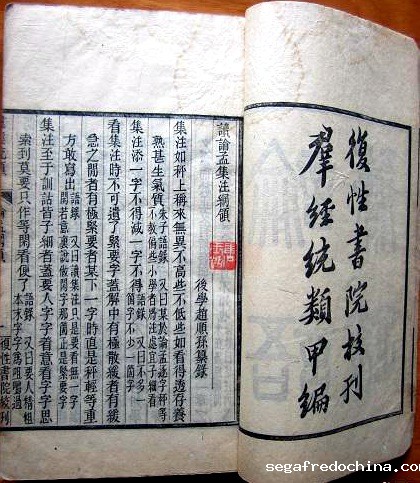 復性書院校刊
羣經統類甲編
讀論孟集注綱領
後學趙順孫纂錄
集注如秤上稱來無異不高些不低些如看得透存養
熟甚生氣質 朱子語錄 又曰某於論孟逐字秤等
不教偏些小學者將注處宜子細看
集注添一字不得减一字不得 語錄 又曰不多一
箇字不少一箇字
看集注時不可遺了緊要字蓋解中有極散緩者有緩
急之閒者有極緊要者某下一字時直是秤輕等重
方敢寫出 語錄 又曰讀集注只是要看無一字
閒若意裏說做閒字那箇正是緊要字
集注至于訓詁皆子細者蓋要人字字着意看字字思
索到莫要只作等閒看便了 語錄 又曰要人精粗
本末字字爲咀嚼過
一 復性書院校刊
segafredochina.com